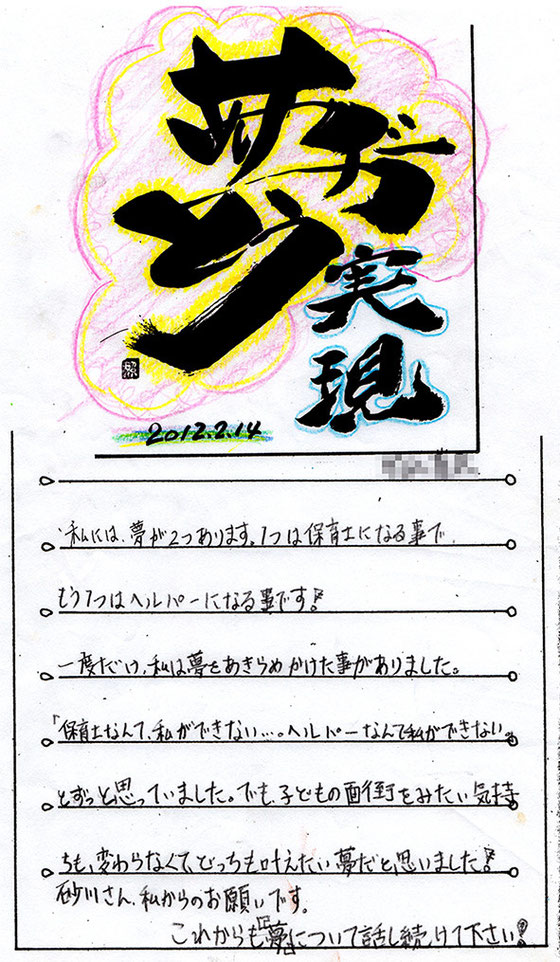 夢
実現
2012.2.14
私には、夢が2つあります。1つは保育士になる事で、
もう1つはヘルパーになる事です!
一度だけ、私は夢をあきらめかけた事がありました。
「保育士なんて、私ができない…。ヘルパーなんて私ができない。
とずっと思っていました。でも、子どもの面倒をみたい気持
ちも、変わらなくて、どっちも叶えたい夢だと思いました!
砂川さん、私からのお願いです。
これからも『夢』について話し続けて下さい!